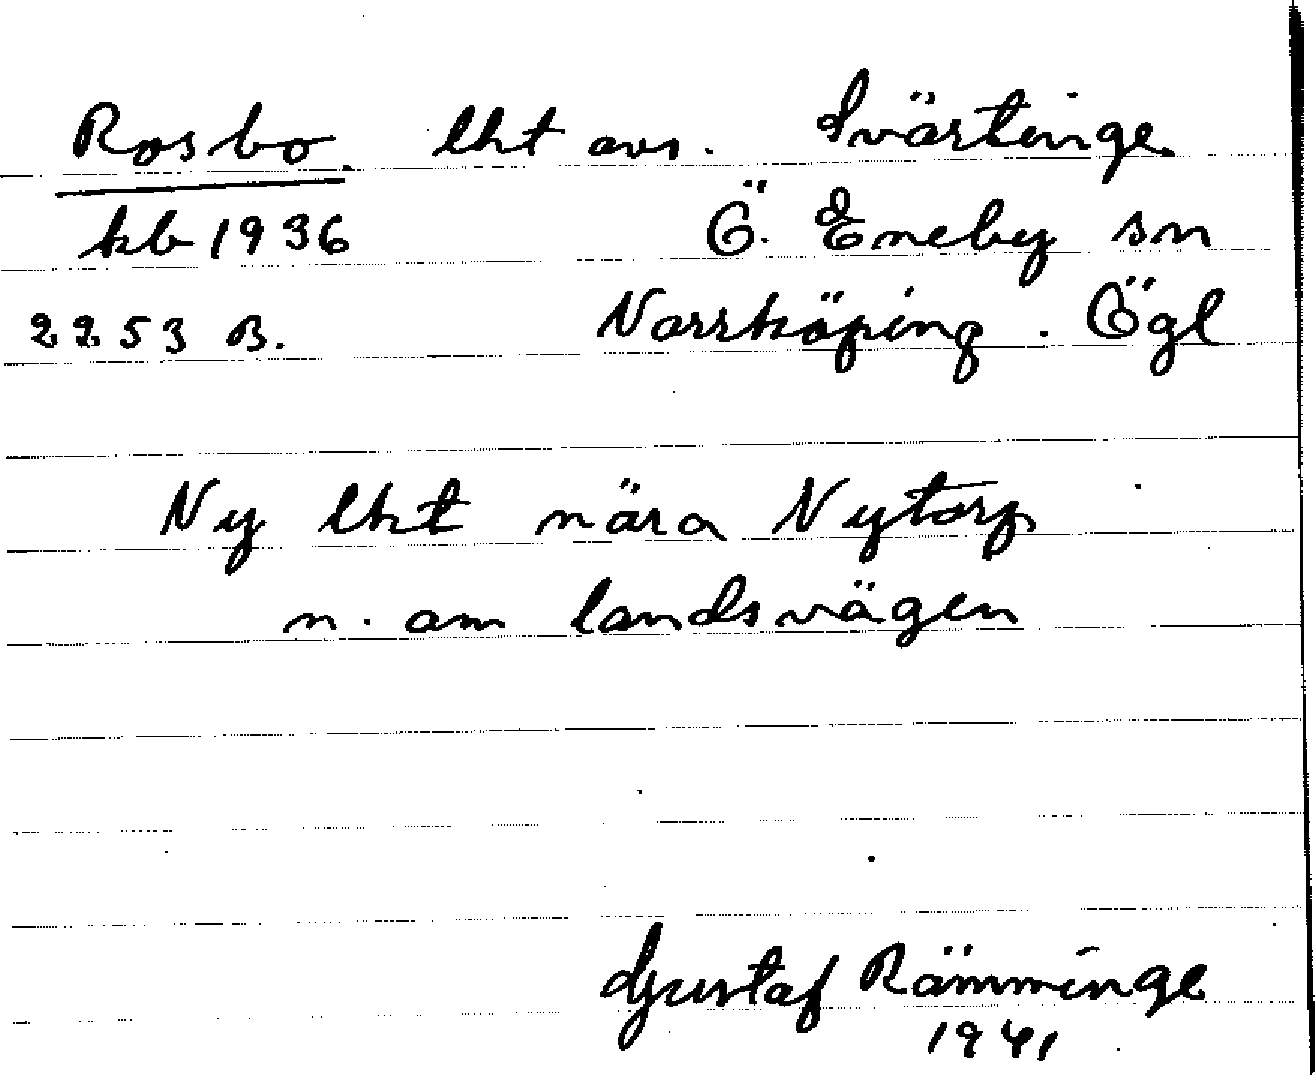 Rosbo lht avs. Svärtinge
kb 1936 Ö. Eneby sn
2253 B. Norrköping. Ögl
Ny lht nära Nytorp
n. om landsvägen
Gustaf Rämminge
1941